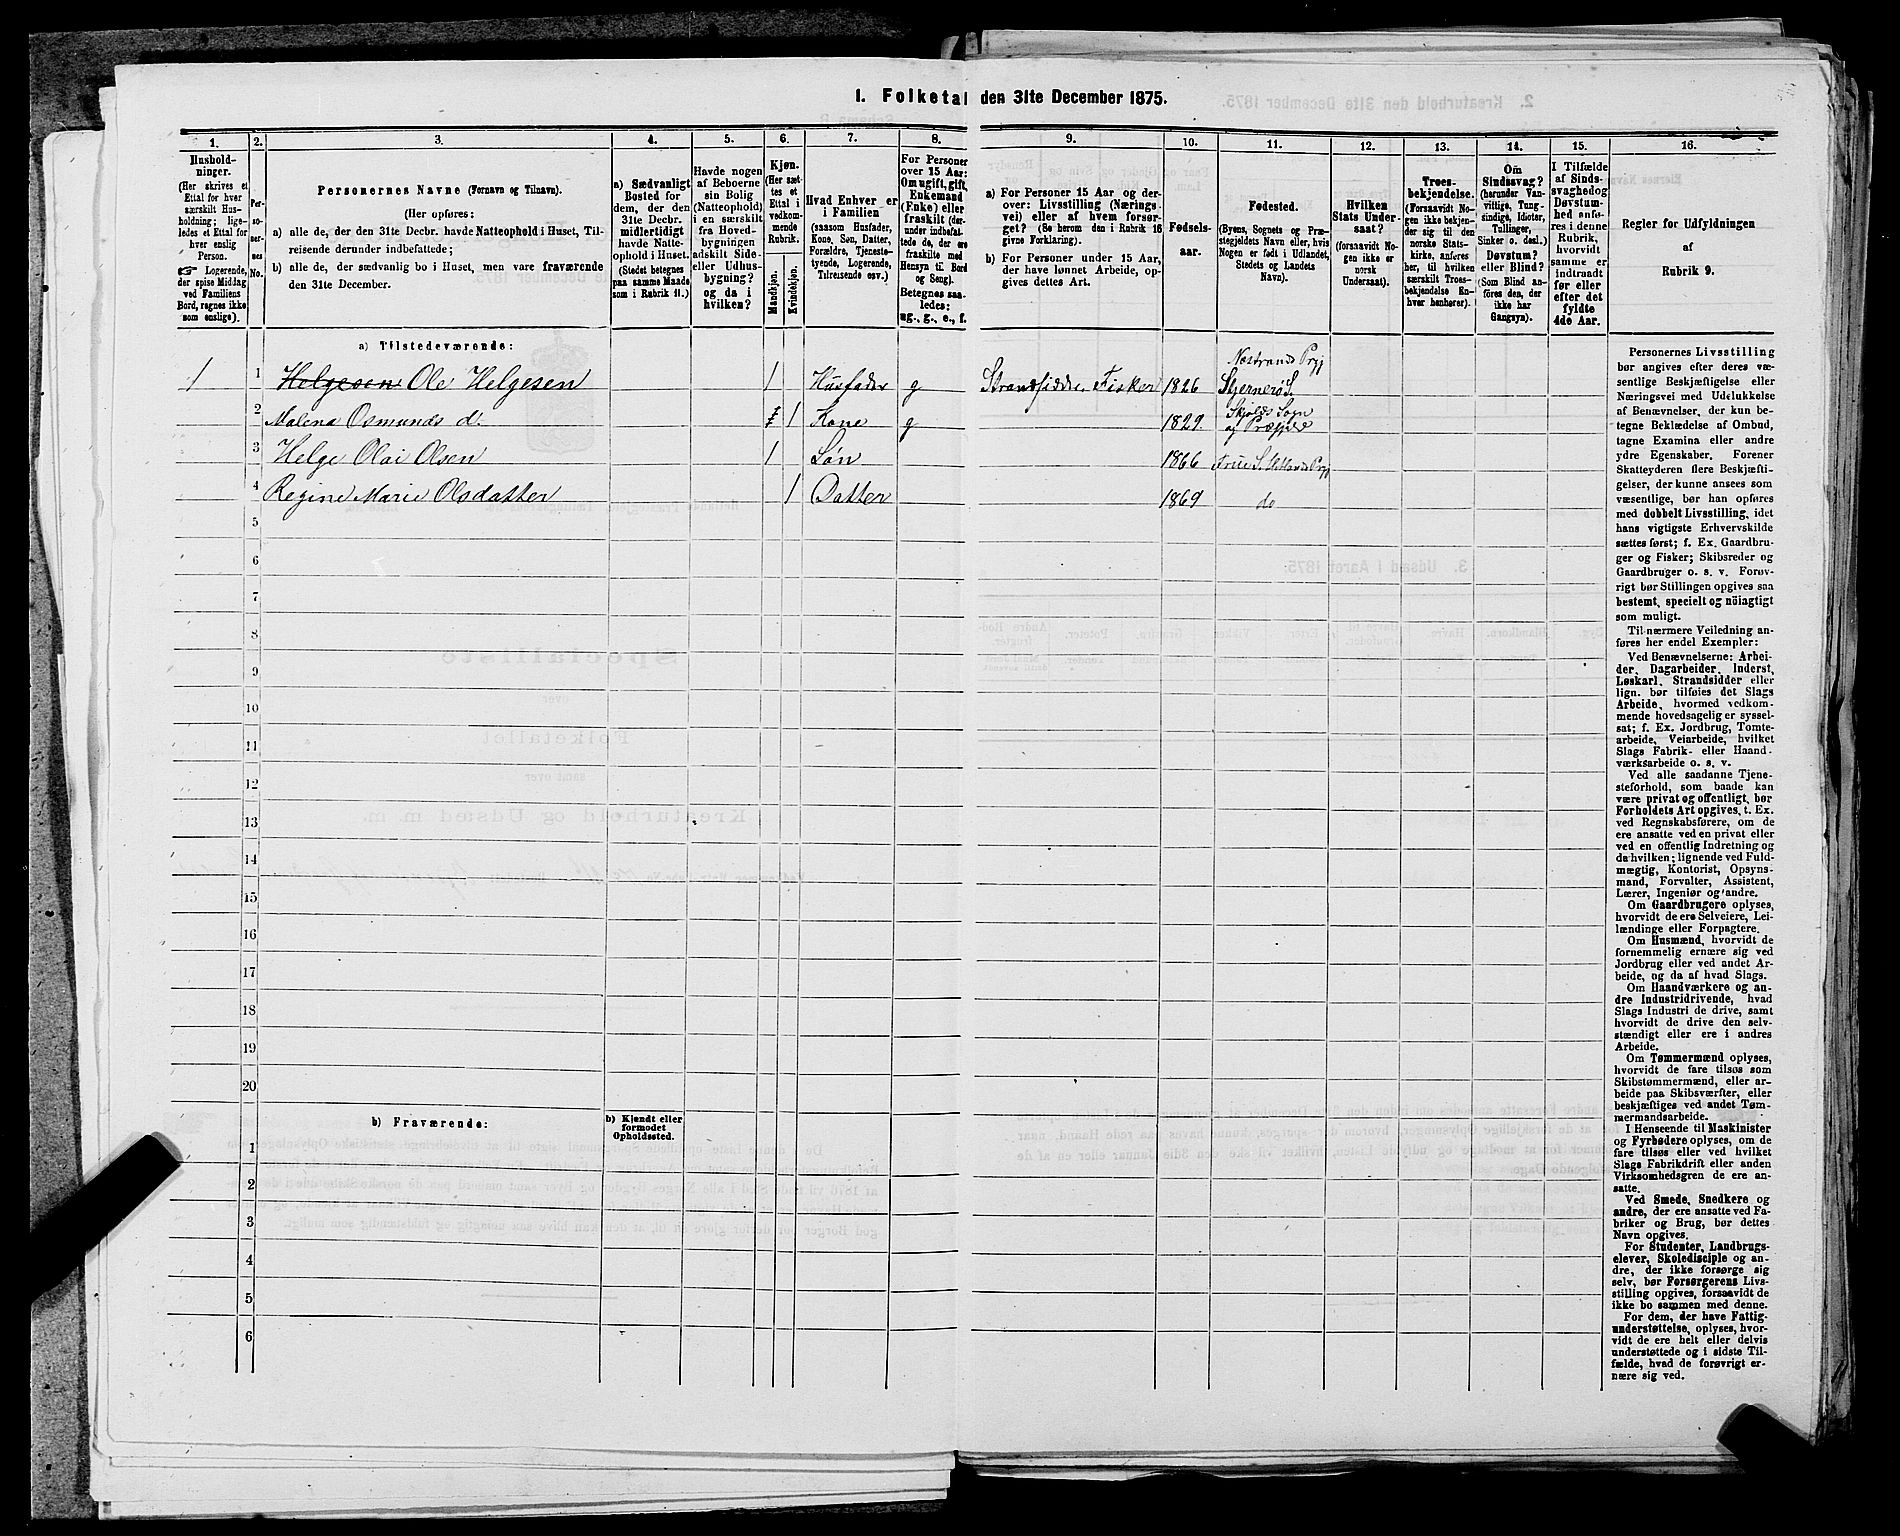 1. Folketal den 31te December 1875.
1.
2.
3.
4.
5.
6.
7.
8.
9.
10.
11.
12.
13.
14.
15.
16.
Hushold-
ninger.
(Her skrives et
Ettal for hver
særskilt Hus-
holdning; lige-
ledes et Ettal for
hver enslig
Person.
☞ Logerende,
der spise Middag
ved Familiens
Bord, regnes ikke
som enslige).
Per-
so-
ner-
nes
No.
Personernes Navne (Fornavn og Tilnavn).
(Her opføres:
a) alle de, der den 31te Decbr. havde Natteophold i Huset, Til-
reisende derunder indbefattede;
b) alle de, der sædvanlig bo i Huset, men vare fraværende
den 31te December.
a) Sædvanligt
Bosted for
dem, der den
31te Decbr.
midlertidigt
havde Natte-
ophold i Huset.
(Stedet betegnes
paa samme Maade
som i Rubrik 11.)
Havde nogen
af Beboerne
sin Bolig
(Natteophold)
i en særskilt
fra Hoved-
bygningen
adskilt Side-
eller Udhus-
bygning?
og da i
hvilken?
Kjøn.
(Her sæt-
tes et
Ettal i
vedkom-
mende
Rubrik.
Mandkjøn.
Kvindekjøn.
Hvad Enhver er
i Familien
(saasom Husfader,
Kone, Søn, Datter,
Forældre, Tjeneste-
tyende, Logerende,
Tilreisende osv.)
For Personer
over 15 Aar:
Om ugift, gift,
Enkemand
(Enke) eller
fraskilt (der-
under indbefat-
tede de, der ere
fraskilte med
Hensyn til Bord
og Seng).
Betegnes saa-
ledes:
ug., g., e., f.
a) For Personer 15 Aar og der-
over: Livsstilling (Nærings-
vei) eller af hvem forsør-
get? (Se herom den i Rubrik 16
givne Forklaring).
b) For Personer under 15 Aar,
der have lønnet Arbeide, op-
gives dettes Art.
Fødsels-
aar.
Fødested.
(Byens, Sognets og Præ-
stegjeldets Navn eller, hvis
Nogen er født i Udlandet,
Stedets og Landets
Navn).
Hvilken
Stats Under-
saat?
(forsaavidt No-
gen ikke er
norsk
Undersaat).
Troes-
bekjendelse.
(Forsaavidt No-
gen ikke bekjen-
der sig til den
norske Stats-
kirke, anføres
her, til hvilken
særskilt Troes-
bekjendelse En-
hver henhører).
Om
Sindssvag?
(herunder Van-
vittige, Tung-
sindige, Idioter,
Tullinger,
Sinker o. desl.)
Døvstum?
eller Blind?
(Som Blind an-
føres den, der
ikke har
Gangsyn).
I Tilfælde
af Sinds-
svaghed og
Døvstum-
hed anfø-
res i denne
Rubrik,
hvorvidt
samme er
indtraadt
før eller
efter det
fyldte
4de Aar.
Regler for Udfyldningen
af
Rubrik 9.
a) Tilstedeværende:
1 1 Helgesen Ole Helgesen 1 Husfader g Strandsidder, Fisker 1826 Nestrands Prgj Skjernerö S.
2 Malena Osmunds d. 1 Kone g 1829. Skjolds Sogn og
3 Helge Olai Olsen 1 Søn 1866 Frue S. Hetlands Prgj
4 Regine Marie Olsdatter 1 Datter 1869 do
5
6
7
8
9
10
11
12
13
14
15
16
17
18
19
20
b) Fraværende:
b) Kjendt eller
formodet
Opholdssted.
1
2
3
4
5
6
Personernes Livsstilling
bør angives efter deres væ-
sentlige Beskjæftigelse eller
Næringsvei med Udelukkelse
af Benævnelser, der kun be-
tegne Beklædelse af Ombud,
tagne Examina eller andre
ydre Egenskaber. Forener
Skatteyderen flere Beskjæfti-
gelser, der kunne ansees som
væsentlige, bør han opføres
med dobbelt Livsstilling, idet
hans vigtigste Erhvervskilde
sættes først; f. Ex. Gaardbru-
ger og Fisker; Skibsreder og
Gaardbruger o. s. v. Forøv-
rigt bør Stillingen opgives saa
bestemt, specielt og nöiagtigt
som muligt.
Til nærmere Veiledning an-
føres her endel Exempler:
Ved Benævnelserne: Arbei-
der, Dagarbeider, Inderst,
Løskarl, Strandsidder eller
lign. bør tilføies det Slags
Arbeide, hvormed vedkom-
mende hovedsagelig er syssel-
sat; f. Ex. Jordbrug, Tomte-
arbeide, Veiarbeide, hvilket
Slags Fabrik- eller Haand-
værksarbeide o. s. v.
Ved alle saadanne Tjene-
steforhold, som baade kan
være privat og offentligt, bør
Forholdets Art opgives, t. Ex.
ved Regnskabsførere, om de
ere ansatte ved en privat eller
ved en offentlig Indretning og
da hvilken; lignende ved Fuld-
mægtig, Kontorist, Opsyns-
mand, Forvalter, Assistent,
Lærer, Ingeniør og andre.
Om Gaardbrugere oplyses,
hvorvidt de ere Selveiere, Lei-
lændinge eller Forpagtere.
Om Husmænd, hvorvidt de
fornemmelig ernære sig ved
Jordbrug eller ved andet Ar-
beide, og da af hvad Slags.
Om Haandværkere og an-
dre Industridrivende, hvad
Slags Industri de drive, samt
hvorvidt de drive den selv-
stændigt eller ere i andres
Arbeide.
Om Tømmermænd oplyses,
hvorvidt de fare tilsøs som
Skibstømmermænd, eller ar-
beide paa Skibsværfter, eller
beskjæftiges ved andet Tøm-
mermandsarbeide.
I Henseende til Maskinister
og Fyrbødere oplyses, om de
fare tilsøs eller ved hvilket
Slags Fabrikdrift eller anden
Virksomhedsgren de ere an-
satte.
Ved Smede, Snedkere og
andre, der ere ansatte ved Fa-
briker og Brug, bør dettes
Navn opgives.
For Studenter, Landbrugs-
elever, Skoledisciple og an-
dre, der ikke forsørge sig
selv, bør Forsørgerens Livs-
stilling opgives, forsaavidt de
ikke bo sammen med denne.
For dem, der have Fattig-
understøttelse, oplyses, hvor-
vidt de ere helt eller delvis
understøttede og i sidste Til-
fælde, hvad de forøvrigt er-
nære sig ved.